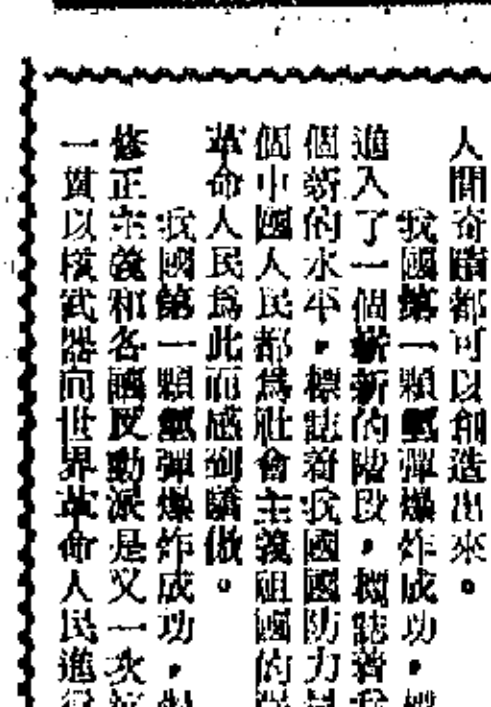 人間奇蹟都可以創造出來。
我國第一顆氫彈爆炸成功，標
進入了一個嶄新的階段，標誌着我
個新的水平，標誌着我國國防力量
個中國人民都爲社會主義祖國的
革命人民爲此而感到驕傲。
我國第一顆氫彈爆炸成功，
修正主義和各國反動派是又一次
一貫以核武器向世界革命人民進行